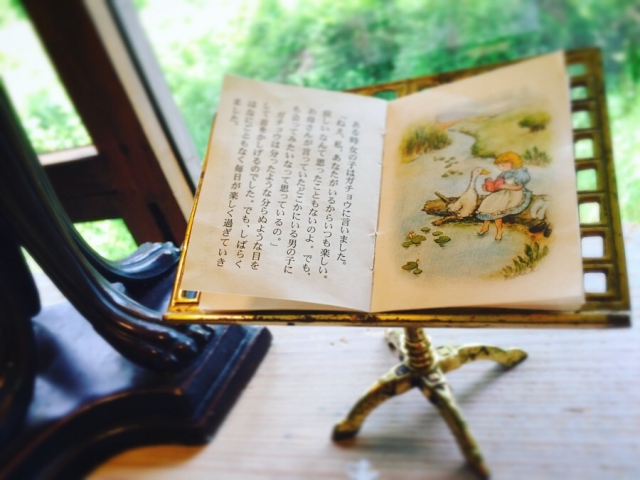 ある時女の子はガチョウに言いました。
「ねえ、私、あなたがいるからいつも楽しい。
淋しいなんて思ったこともないのよ。でも、
お母さんが言っていたどこかにいる男の子に
も会ってみたいなって思っているの。」
ガチョウは分ったような分らぬような目を
して首をかしげるのでした。でも、しばらく
は何ごともなく毎日が楽しく過ぎていき
ました。